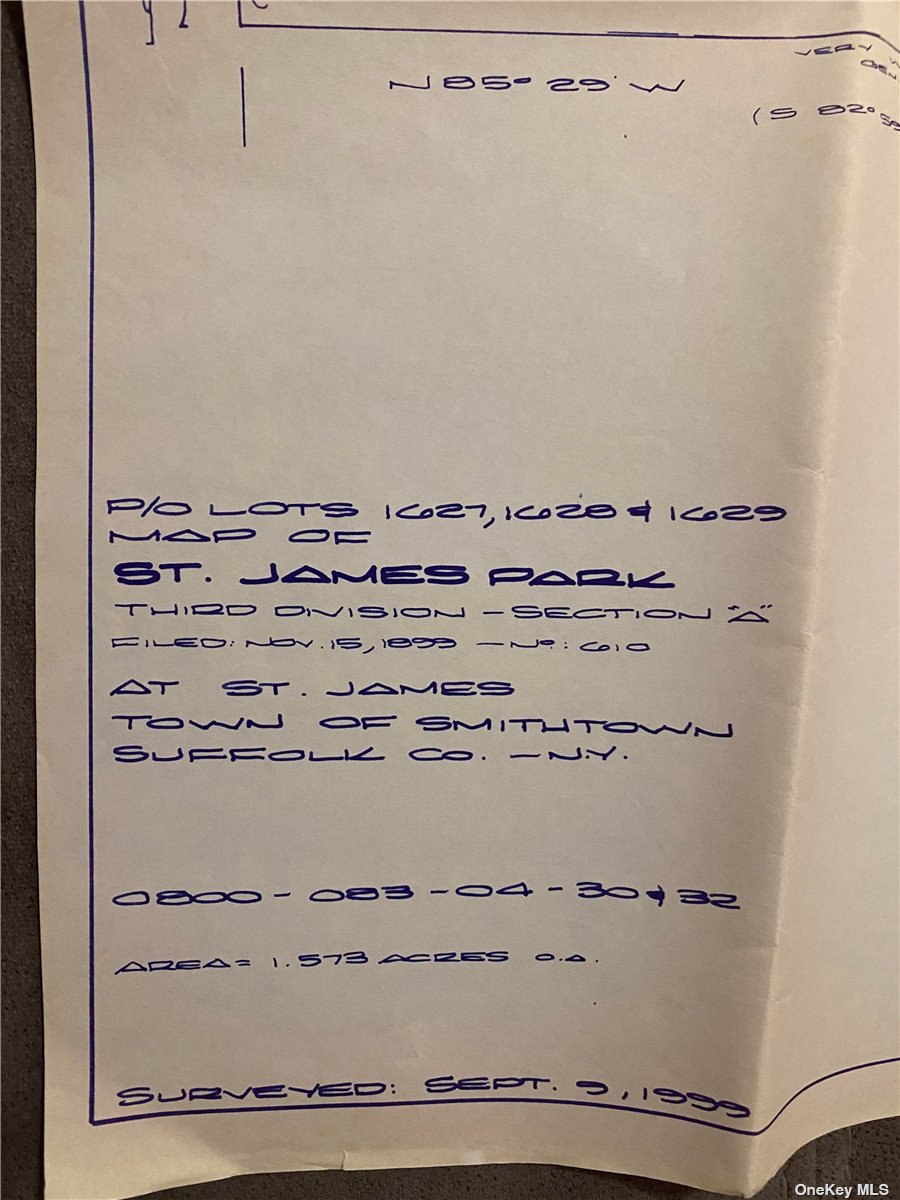 N 85° 29' W
VERY
(S 82°
P/O LOTS 1627, 1628 & 1629
MAP OF
ST. JAMES PARK
THIRD DIVISION - SECTION "A"
FILED: NOV. 15, 1899 - Nº: 610
AT ST. JAMES
TOWN OF SMITHTOWN
SUFFOLK CO. - N.Y.
0800 - 083 - 04 - 30 & 32
AREA = 1.573 ACRES O.A.
SURVEYED: SEPT. 9, 1999
OneKey MLS